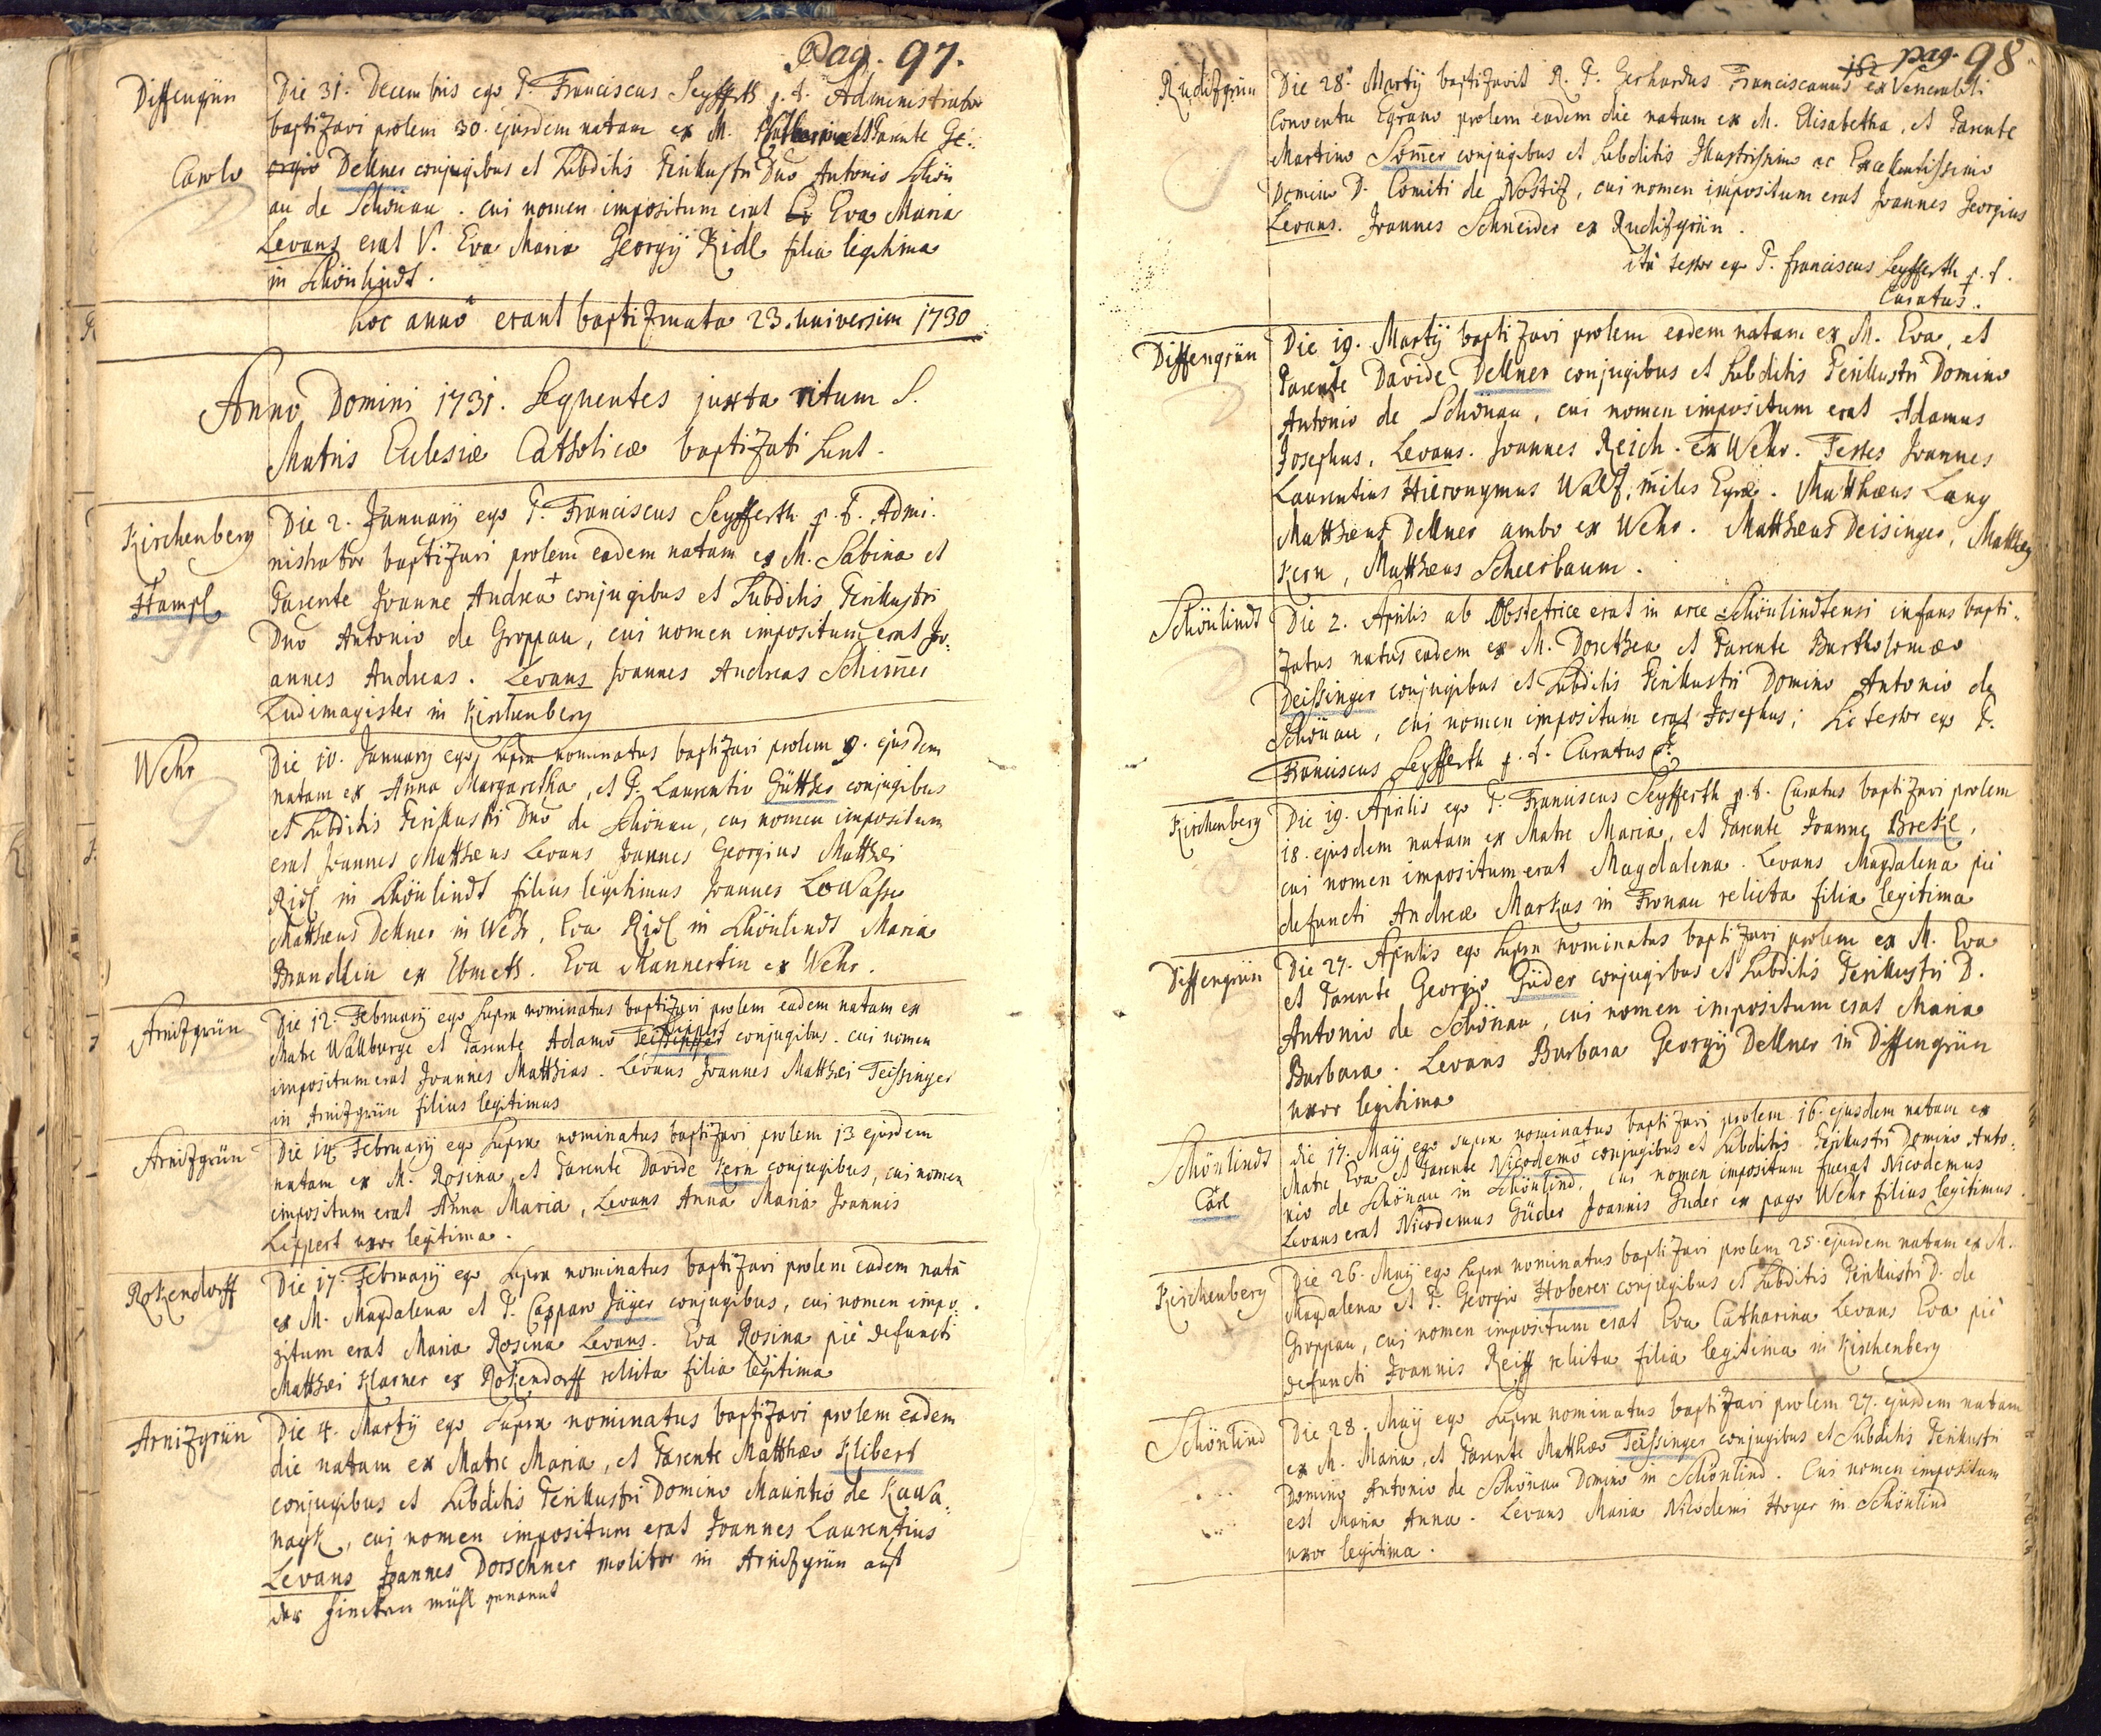 Pag. 97.
Diffengrün
Die 31. Decembris ego P. Franciscus Seyfferth p. t. Administrator
baptizavi prolem 30. ejusdem natam ex M. et Parente Ge-
Carolo
orgio Dellner conjugibus et Subditis Perillustri Dno Antonio Schön
au de Schönau. cui nomen impositum erat Eva Maria
Levans erat V. Eva Maria Georgÿ Ridl filia legitima
in Schönlindt.
hoc annô erant baptizmata 23. universim 1730
Anno Domini 1731. Sequentes juxta ritum S.
Matris Eclesiæ Catholicæ baptizati sunt.
Kirchenberg
Die 2. Januarÿ ego P. Franciscus Seyfferth p. t. Admi-
nistrator baptizavi prolem eadem natam ex M. Sabina et
+
Hampl
Parente Joanne Andrea + conjugibus et Subditis Perillustri
Dno Antonio de Groppau, cui nomen impositum erat Jo-
annes Andreas. Levans Joannes Andreas Schim̄er
Ludimagister in Kirchenberg
Wehr
Die 10. Januarÿ ego supra nominatus baptizavi prolem 9. ejusdem
natam ex Anna Margaretha, et P. Laurentio Gütther conjugibus
et Subditis Perillustri Dno de Schönau, cui nomen impositum
erat Joannes Matthæus Levans Joannes Georgius Matthæi
Ridl in Schönlindt filius legitimus Joannes Lowasser
Matthæus Dellner in Wehr, Eva Ridl in Schönlindt Maria
Brandlin ex Ebmeth. Eva Mannertin ex Wehr.
Arnizgrün
Die 12. Februarÿ ego supra nominatus baptizavi prolem eadem natam ex
Lippert
Matre Wallburge et Parente Adamo conjugibus. cui nomen
impositum erat Joannes Matthias. Levans Joannes Matthæi Teissinger
in Arnizgrün filius legitimus
Arnizgrün
Die 14 Februarÿ ego supra nominatus baptizavi prolem 13 ejusdem
natam ex M. Rosina, et Parente Davide Kern conjugibus, cui nomen
impositum erat Anna Maria, Levans Anna Maria Joannis
Lippert uxor legitima.
Rokendorff
Die 17. Februarÿ ego supra nominatus baptizavi prolem eadem natā
ex M. Magdalena et P. Casparo Jäger conjugibus, cui nomen impo-
situm erat Maria Rosina Levans. Eva Rosina piè defuncti
Matthæi Klarner ex Rokendorff relicta filia legitima
Arnizgrün
Die 4. Martÿ ego supra nominatus baptizavi prolem eadem
die natam ex Matre Maria, et Parente Matthæo Klibert
conjugibus et Subditis Perillustri Domino Mauritio de Kawa-
nagk, cui nomen impositum erat Joannes Laurentius
Levans Joannes Dorschner molitor in Arnizgrün auf
der mühl genannt
182 pag. 98
Rudizgrün
Die 28. Martÿ baptizavit R. P. Gerhardus Franciscanus ex Venerabili
Conventu Egrano prolem eadem die natam ex M. Elisabetha, et Parente
Martino Som̄er conjugibus et Subditis Illustrissimo ac Excellentissimo
Domino D. Comiti de Nostiz, cui nomen impositum erat Joannes Georgius
Levans. Joannes Schneider ex Rudizgrün.
ità testor ego P. Franciscus Seyfferth p. t.
Curatus.
Diffengrün
Die 19. Martÿ baptizavi prolem eadem natam ex M. Eva, et
Parente Davide Dellner conjugibus et Subditis Perillustri Domino
Antonio de Schönau, cui nomen impositum erat Adamus
Josephus, Levans. Joannes Reich. ex Wehr. Testes Joannes
Laurentius Hieronymus Wallf, miles Egræ. Matthæus Lang
Matthæus Dellner ambo ex Wehr. Matthæus Deisinger, Matthæus
Kern, Matthæus Scheerbaum.
Schönlindt
Die 2. Aprilis ab Obstetrice erat in arce Schönlindtensi infans bapti-
zatus natus eadem ex M. Dorethea et Parente Bartholomæo
Deissinger conjugibus et Subditis Perillustri Domino Antonio de
Schönau, cui nomen impositum erat Josephus; Sic testor ego P.
Franciscus Seyfferth p. t. Curatus
Kirchenberg
Die 19. Aprilis ego P. Franciscus Seyfferth p. t. Curatus baptizavi prolem
18. ejusdem natam ex Matre Maria, et Parente Joanne Brekl,
cui nomen impositum erat Magdalena. Levans Magdalena piè
defuncti Andreæ Markus in Fronau relicta filia legitima
Diffengrün
Die 27. Aprilis ego supra nominatus baptizavi prolem ex M. Eva
et Parente Georgio Güder conjugibus et Subditis Perillustri D.
Antonio de Schönau, cui nomen impositum erat Maria
Barbara. Levans Barbara Georgÿ Dellner in Diffengrün
uxor legitima
Schönlindt
die 17. Maÿ ego supra nominatus baptizavi prolem 16. ejusdem natam ex
Matre Eva et Parente Nicodemo + conjugibus et Subditis Perillustri Domino Anto-
Carl
nio de Schönau in Schönlind, cui nomen impositum fuerat Nicodemus
Levans erat Nicodemus Güder Joannis Guder ex pago Wehr filius legitimus.
Kirchenberg
Die 26. Maÿ ego supra nominatus baptizavi prolem 25. ejusdem natam ex M.
Magdalena et P. Georgio Hoberer conjugibus et Subditis Perillustri D. de
Groppau, cui nomen impositum erat Eva Catharina Levans Eva piè
defuncti Joannis Reiff relicta filia legitima in Kirchenberg
Schönlind
Die 28. Maÿ ego supra nominatus baptizavi prolem 27. ejusdem natam
ex M. Maria, et Parente Matthæo Teissinger conjugibus et Subditis Perillustri
Domino Antonio de Schönau Domino in Schönlind. Cui nomen impositum
est Maria Anna. Levans Maria Nicodemi Hoyer in Schönlind
uxor legitima.